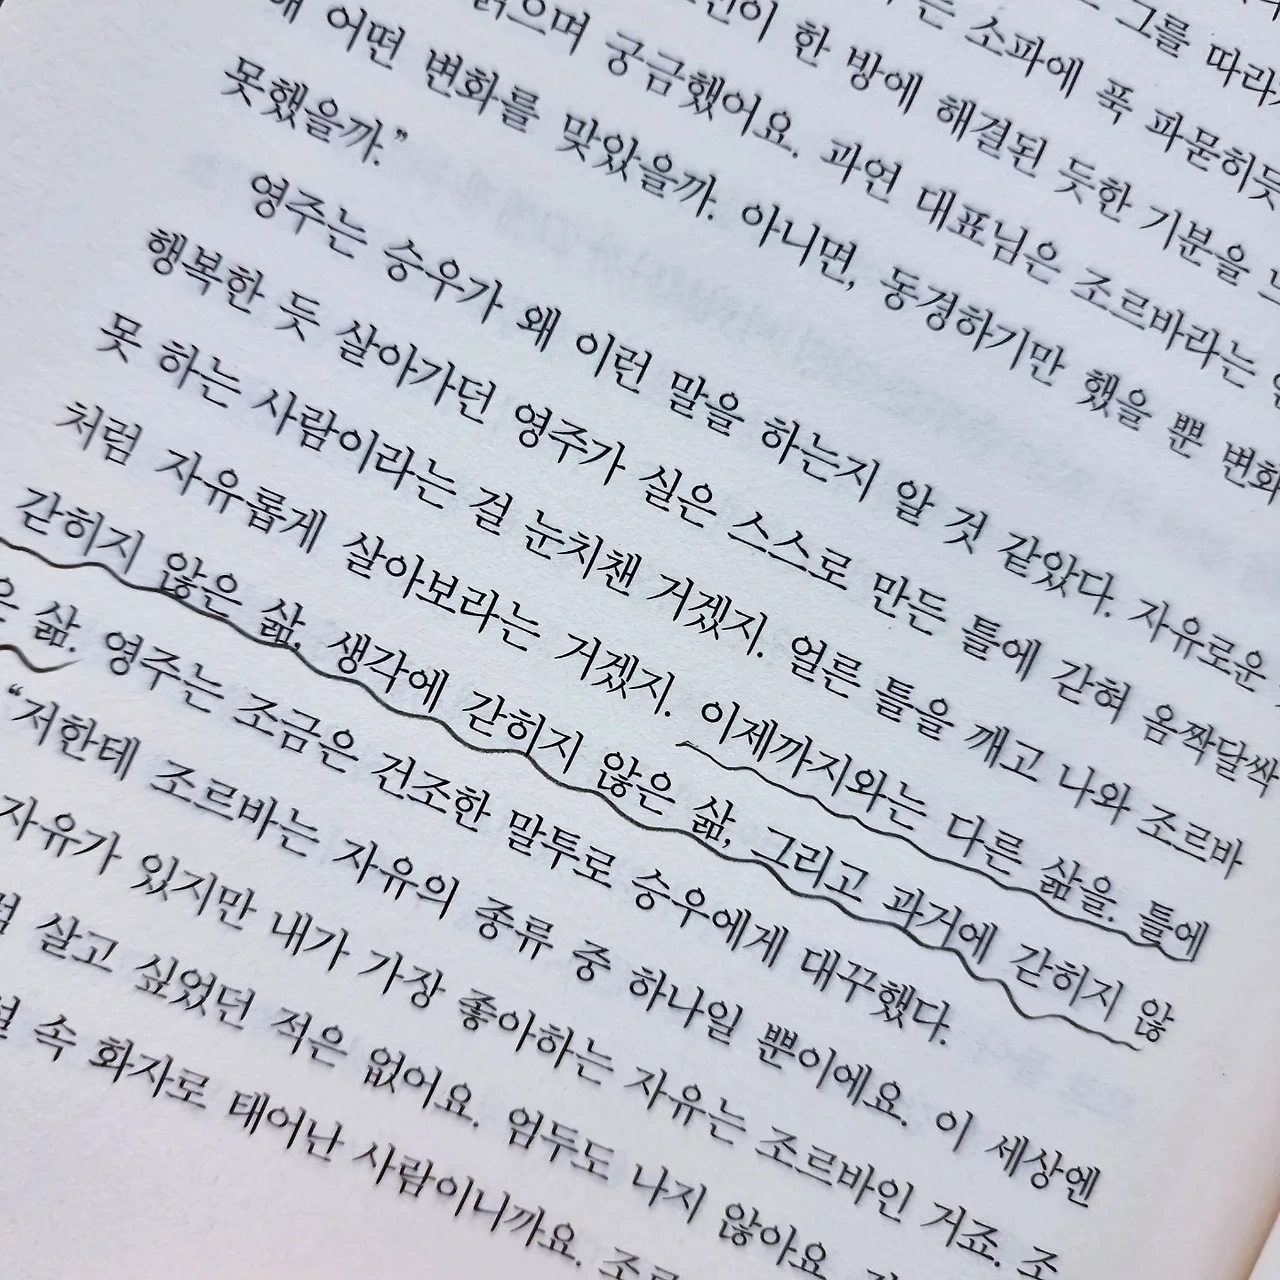 그를 따라
소파에 폭 파묻히듯
한 방에 해결된 듯한 기분을
읽으며 궁금했어요. 과연 대표님은 조르바라는
해 어떤 변화를 맞았을까. 아니면, 동경하기만 했을 뿐 변화
못했을까.”
영주는 승우가 왜 이런 말을 하는지 알 것 같았다. 자유로운
행복한 듯 살아가던 영주가 실은 스스로 만든 틀에 갇혀 옴짝달싹
못 하는 사람이라는 걸 눈치챈 거겠지. 얼른 틀을 깨고 나와 조르바
처럼 자유롭게 살아보라는 거겠지. 이제까지와는 다른 삶을. 틀에
갇히지 않은 삶, 생각에 갇히지 않은 삶, 그리고 과거에 갇히지 않
은 삶. 영주는 조금은 건조한 말투로 승우에게 대꾸했다.
“저한테 조르바는 자유의 종류 중 하나일 뿐이에요. 이 세상엔
자유가 있지만 내가 가장 좋아하는 자유는 조르바인 거죠. 조
살고 싶었던 적은 없어요. 엄두도 나지 않아요.
속 화자로 태어난 사람이니까요.